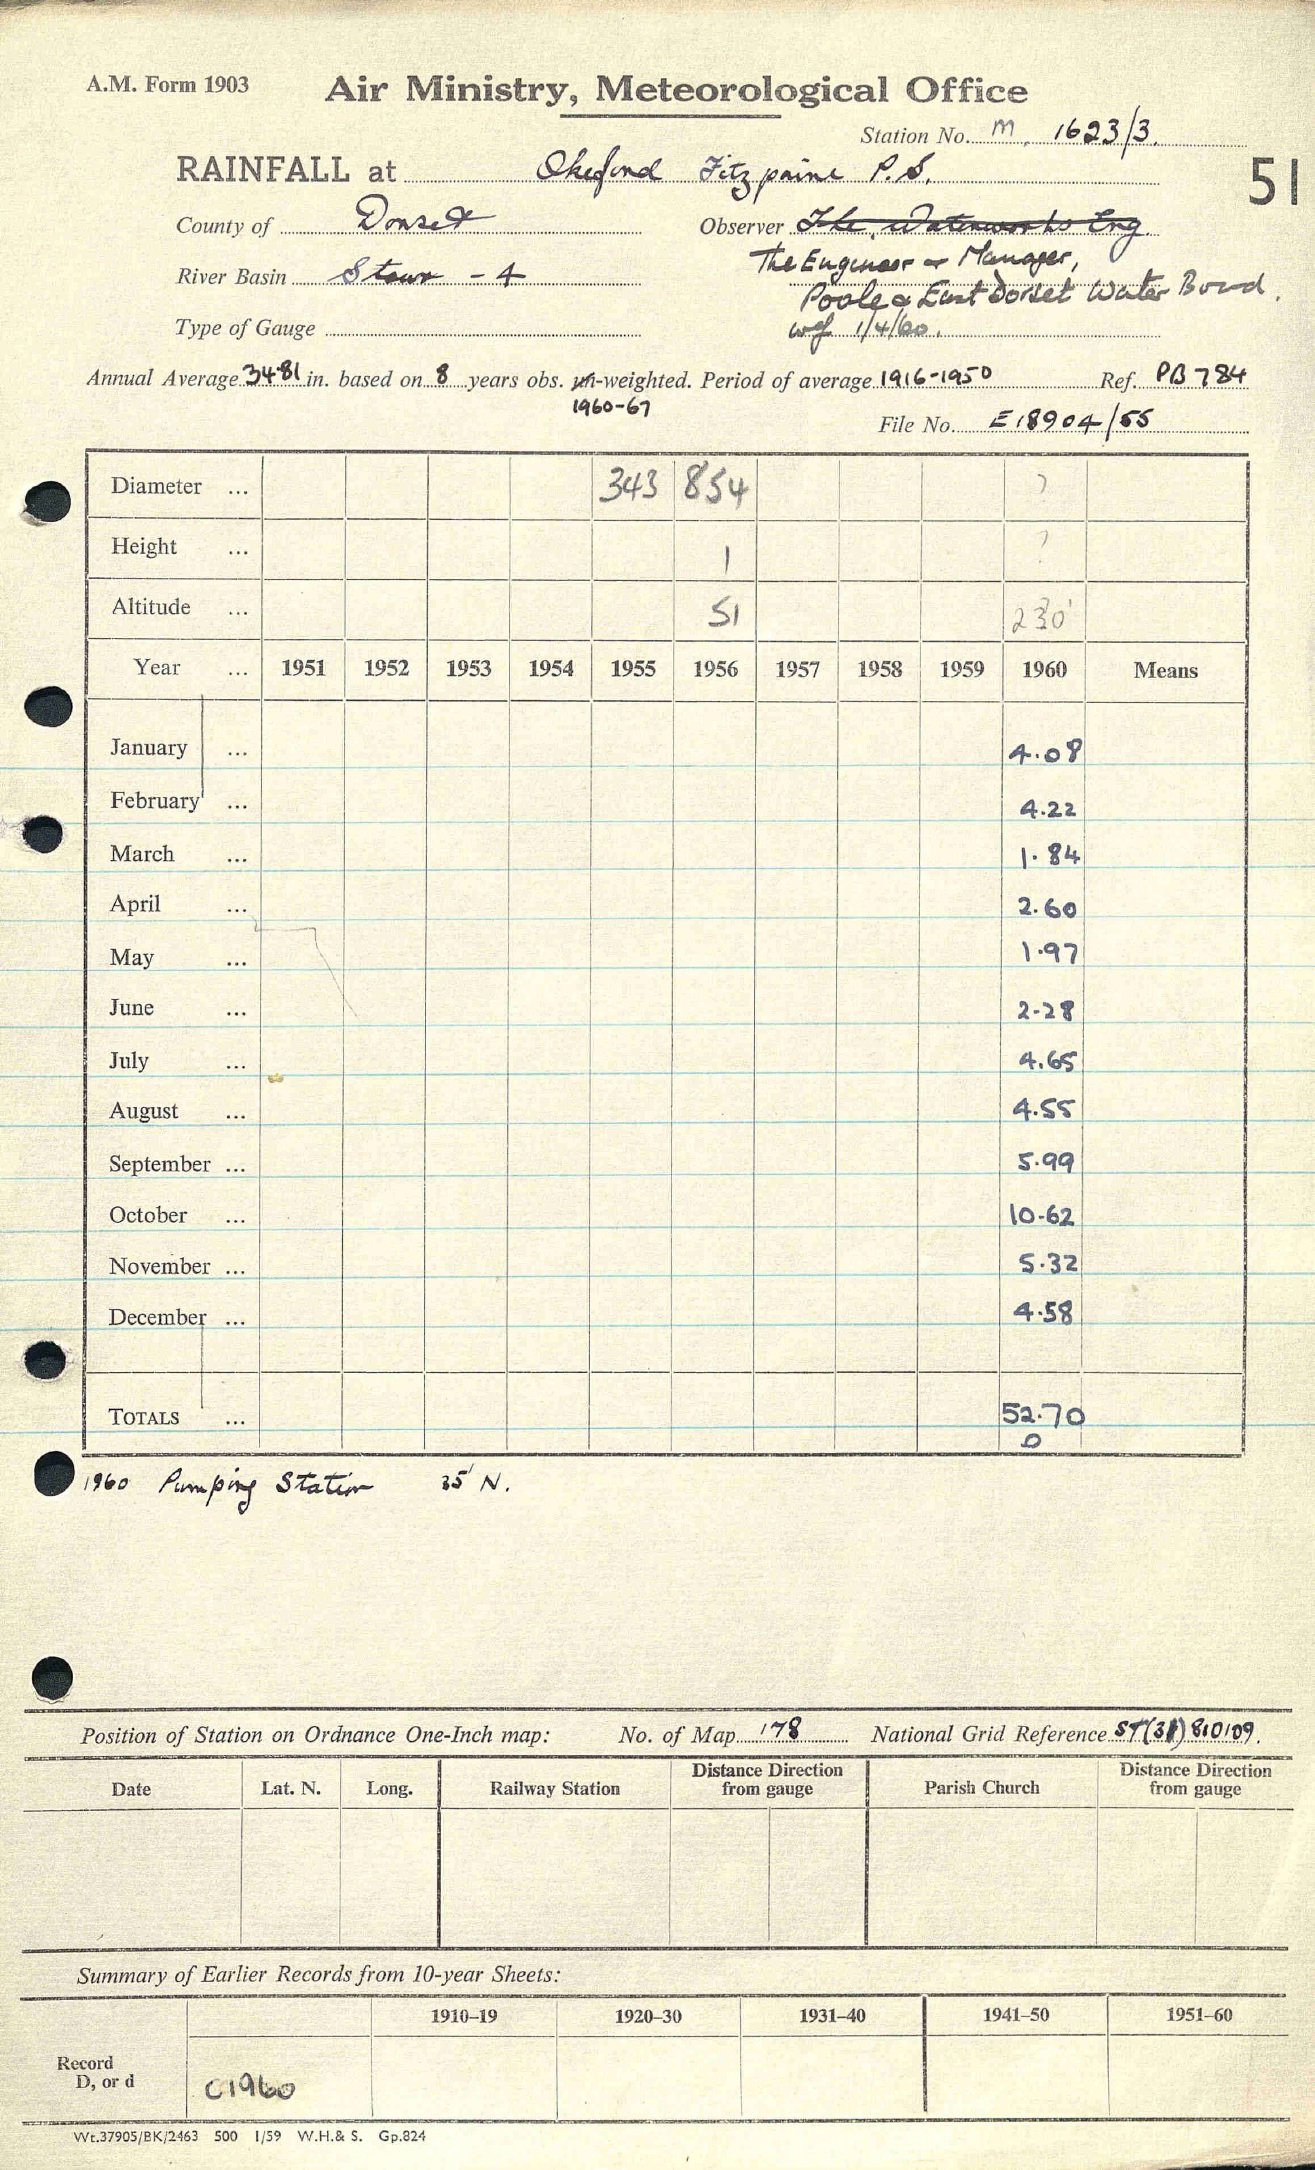 A.M. Form 1903 Air Ministry, Meteorological Office
Station No. m. 1623/3.
RAINFALL at Okeford Fitzpaine P.S. 51
County of Dorset Observer The Waterworks Eng
The Engineer & Manager,
River Basin Stour - 4
Poole & East Dorset Water Board.
Type of Gauge wef 1/4/60.
Annual Average 34.81 in. based on 8 years obs. un-weighted. Period of average 1916-1950 Ref. PB784
1960-67
File No. E18904/55
Diameter ... 343 854 ?
Height ... 1 ?
Altitude ... 51 230'
Year ... 1951 1952 1953 1954 1955 1956 1957 1958 1959 1960 Means
January ... 4.08
February ... 4.22
March ... 1.84
April ... 2.60
May ... 1.97
June ... 2.28
July ... 4.65
August ... 4.55
September ... 5.99
October ... 10.62
November ... 5.32
December ... 4.58
TOTALS ... 52.70
0
1960 Pumping Station 35' N.
Position of Station on Ordnance One-Inch map: No. of Map 178 National Grid Reference ST(31) 810109.
Date Lat. N. Long. Railway Station Distance Direction from gauge Parish Church Distance Direction from gauge
Summary of Earlier Records from 10-year Sheets:
1910-19 1920-30 1931-40 1941-50 1951-60
Record
D, or d C1960
Wt.37905/BK/2463 500 1/59 W.H.& S. Gp.824